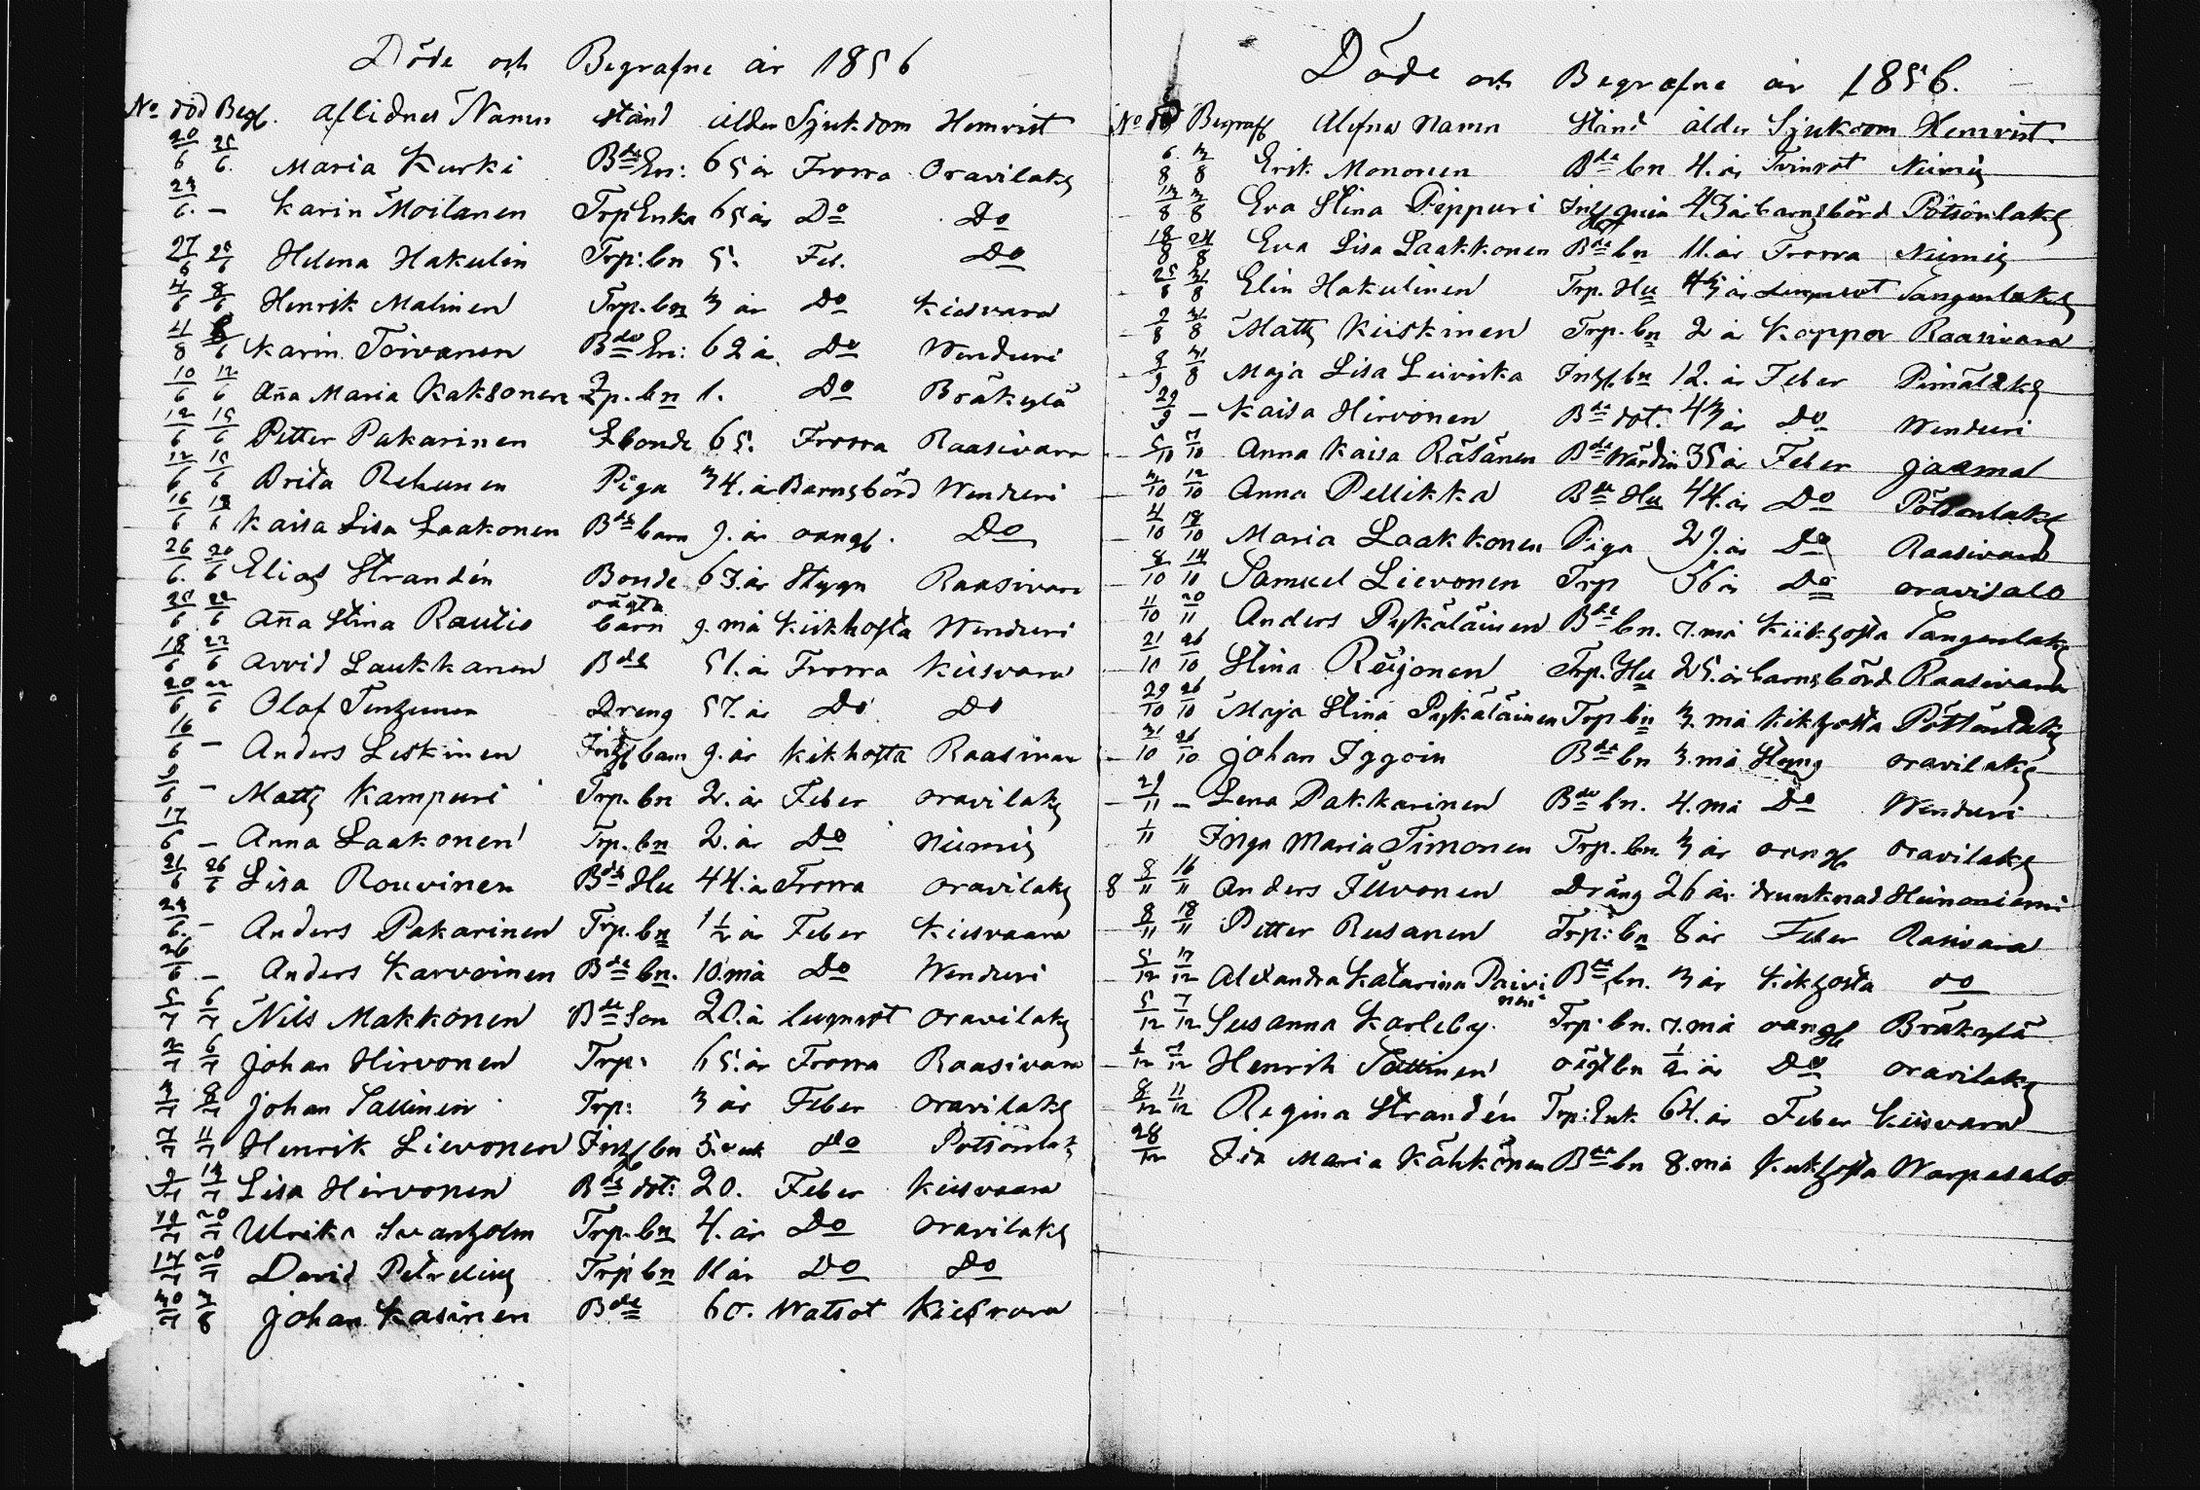 Döde och Begrafne år 1856
No död Begf. Aflidnes Namn stånd ålder Sjukdom Hemvist
20/6 25/6 Maria Kurki Bde En: 65 år Frossa Oravilaks
23/6 – Karin Moilanen Trp Enka 65 år Do Do
27/6 28/6 Helena Hakulin Trp: bn 5. Feb. Do
4/6 8/6 Henrik Malinen Trp. bn 3 år Do Kiesvara
4/8 8/6 Karin Toivanen Bde En: 62 år Do Wenduri
10/6 12/6 Aña Maria Kaksonen Lp. bn 1. Do Bräkylä
12/6 15/6 Petter Pakarinen Lbonde 65. Frossa Raasivara
12/6 15/6 Brita Rehunen Piga 34. år Barnsbörd Wenduri
16/6 18/6 Kaisa Lisa Laakonen Bde barn 9. år oangf. Do
26/6 20/6 Elias Strandén Bonde 63. år Stygn Raasivara
25/6 22/6 Aña Stina Rautio oägta barn 9. må Kikhosta Wenduri
18/6 22/6 Arvid Laukkanen Bde 51. år Frossa Kiesvara
20/6 22/6 Olof Dreng 57. år Do Do
16/6 – Anders Leskinen Inhs barn 9. år Kikhosta Raasivara
9/6 – Matts Kampuri Trp. bn 2. år Feber Oravilaks
17/6 – Anna Laakonen Trp. bn 2. år Do Niimis
21/6 26/6 Lisa Rouvinen Bde Hu 44. år Frossa Oravilaks
24/6 – Anders Pakarinen Trp. bn 1½ år Feber Kiesvaara
26/6 – Anders Karvoinen Bde bn. 10. må Do Wenduri
5/7 6/7 Nils Makkonen Bde Son 20. år lungsot Oravilaks
2/7 6/7 Johan Hirvonen Trp: 65. år Frossa Raasivara
3/7 8/7 Johan Sallinen Trp: 3 år Feber Oravilaks
7/7 11/7 Henrik Lievonen Inhs bn 5. vek Do Potsönlak
9/7 13/7 Lisa Hirvonen Bde dot: 20. Feber Kiesvaara
19/7 20/7 Ulrika Svartholm Trp. bn 4. år Do Oravilaks
17/7 20/7 David Petrelius Trp bn 11 år Do Do
30/7 3/8 Johan Kasinen Bde 60. Watsot Kiesvara
Döde och Begrafne år 1856.
No död Begraf Aflidnes Namn Stånd ålder Sjukdom Hemvist.
6/8 13/8 Erik Mononen Bde bn 4. år Tvinsot Niimis
13/8 /8 Eva Stina Pippuri Inhs 43 år barnsbörd Pötsönlaks
18/8 24/8 Eva Lisa Laakkonen Bde bn 11. år Frossa Niimis
25/8 31/8 Elin Hakulinen Trp. Hu 43 år Lungsot Tangenlaks
9/8 31/8 Matts Kiiskinen Trp. bn 2 år Koppor Raasivara
9/9 31/8 Maja Lisa Leiviska Inhs bn 12. år Feber
29/9 – Kaisa Hirvonen Bde dot. 43 år Do Wenduri
5/10 7/10 Anna Kaisa Räsänen Bde Wärdin 35 år Feber Jaamal
3/10 12/10 Anna Pellikka Bde Hu 44. år Do Pötsönlaks
4/10 18/10 Maria Laakkonen Piga 29. år Do Raasivara
8/10 14/10 Samuel Lievonen Trp 56 år Do Oravisalo
11/10 20/11 Anders Pyskäläinen Bde bn. 7. må Kiikhosta Tangenlaks
21/10 26/10 Stina Reijonen Trp. Hu 25. år barnsbörd Raasivara
29/10 26/10 Maja Stina Pyskäläinen Trp bn 3. må Kikhosta Pötsönlaks
31/10 26/10 Johan Iggoin Bde bn 3. må Stygn Oravilaks
29/11 – Lena Pakkarinen Bde bn. 4. må Do Wenduri
1/11 Inga Maria Timonen Trp. bn. 3 år oangf Oravilaks
8 9/11 16/11 Anders Ilvonen Dräng 26 år drunknad Heinoniemi
8/11 18/11 Petter Rusanen Trp: bn 8 år Feber Rasivara
5/12 17/12 Alexandra Katarina Paivinen Bde bn. 3 år Kikhosta do
5/12 7/12 Susanna Karleby. Trp. bn. 7. må oangf Bräkylä
1/12 7/12 Henrik Sallinen oägt bn ½ år Do Oravilaks
8/12 11/12 Regina Strandén Trp: Enk 64. år Feber Kiisvara
28/12 Maria Kähkönen Bde bn 8. må Kikhosta Warpasalo